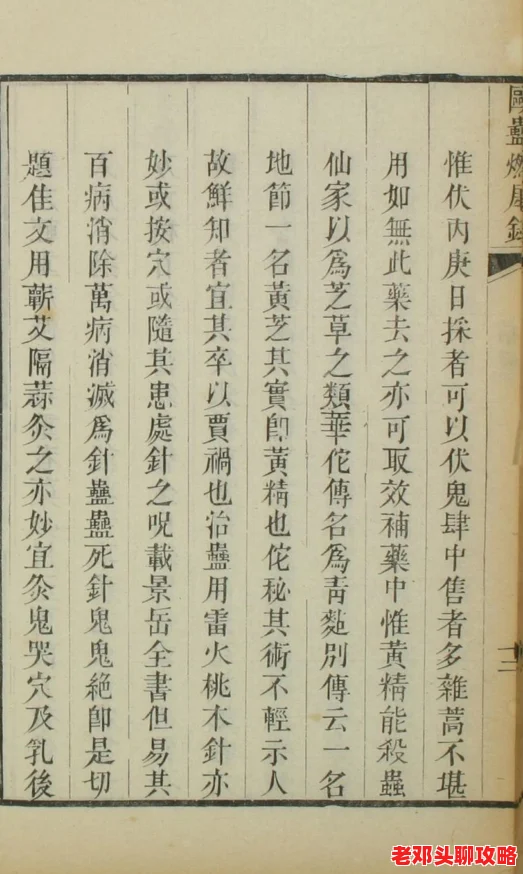 毆蠱燃犀錄
惟伏丙庚日採者可以伏鬼肆中售者多雜蒿不堪
用如無此藥去之亦可取效補藥中惟黃精能殺蟲
仙家以爲芝草之類華佗傳名爲靑麪別傳云一名
地節一名黃芝其實卽黃精也佗秘其術不輕示人
故鮮知者宜其卒以賈禍也治蠱用雷火桃木針亦
妙或按穴或隨其患處針之呪載景岳全書但易其
百病消除萬病消滅爲針蠱蠱死針鬼鬼絶卽是切
題佳文用蘄艾隔蒜灸之亦妙宜灸鬼哭穴及乳後
十二
老邓头聊攻略